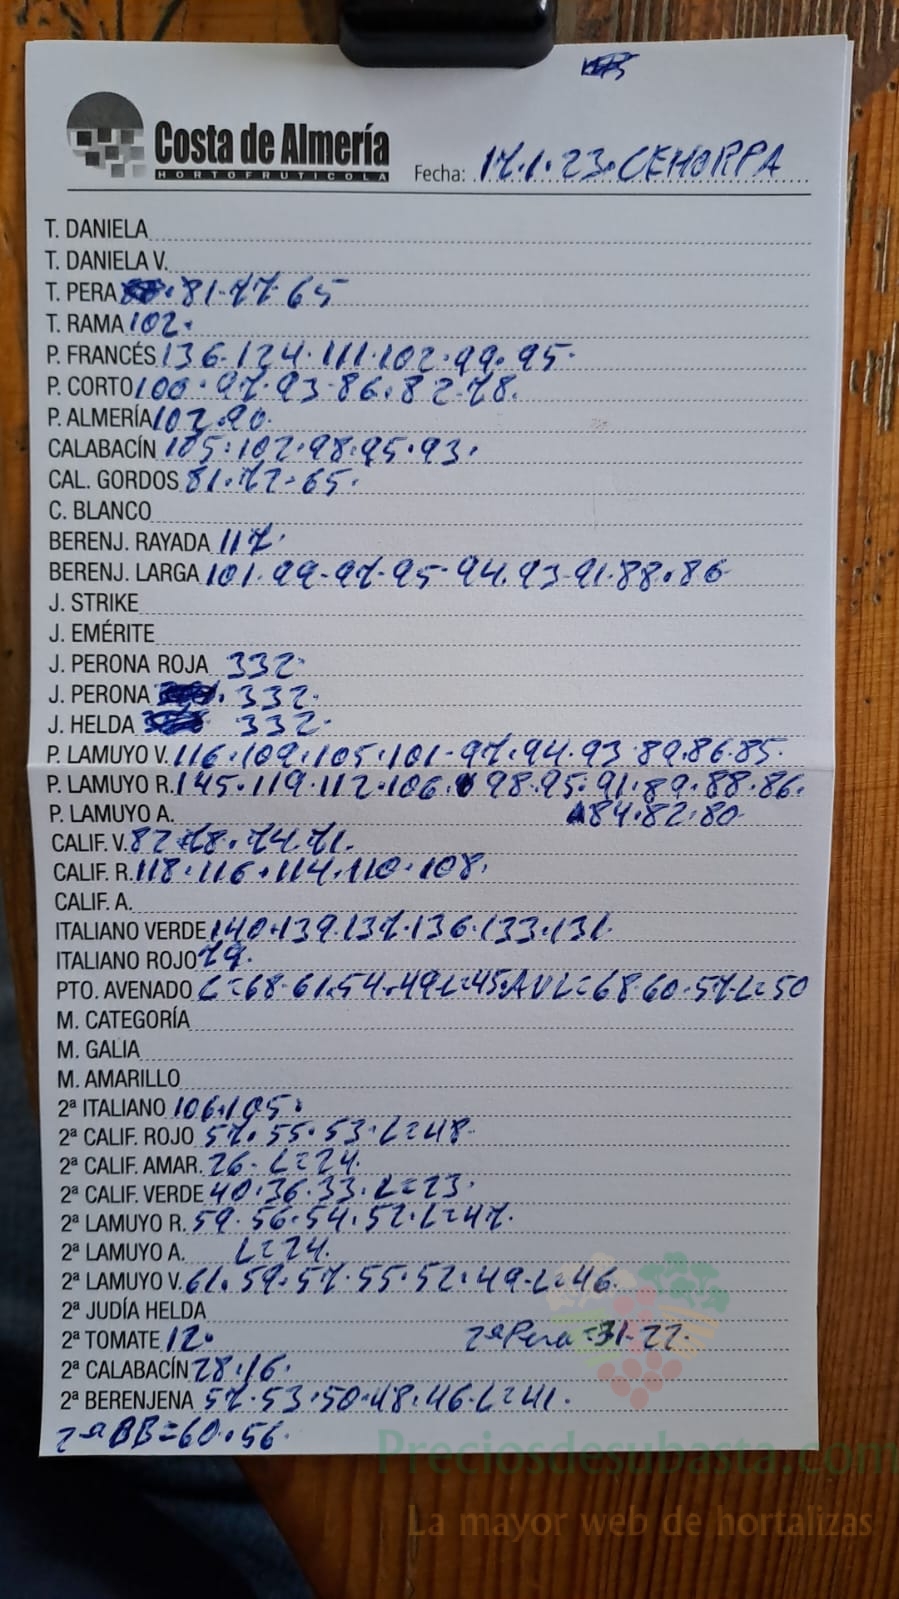 Costa de Almería
HORTOFRUTICOLA
Fecha: 17.1.23. CEHORPA
T. DANIELA
T. DANIELA V.
T. PERA 81.77.65
T. RAMA 102.
P. FRANCÉS 136.124.111.102.99.95.
P. CORTO 100.97.93.86.82.78.
P. ALMERÍA 102.90.
CALABACÍN 105.102.98.95.93.
CAL. GORDOS 81.72-65.
C. BLANCO
BERENJ. RAYADA 117.
BERENJ. LARGA 101.99-97-95-94.93-91.88.86
J. STRIKE
J. EMÉRITE
J. PERONA ROJA 332.
J. PERONA 332.
J. HELDA 332.
P. LAMUYO V. 116.109.105.101-97.94.93.89.86.85.
P. LAMUYO R. 145.119.112.106. 98.95.91.89.88.86.
P. LAMUYO A. 84.82.80
CALIF. V. 82.78.74.71.
CALIF. R. 118.116.114.110.108.
CALIF. A.
ITALIANO VERDE 140.139.137.136.133.131.
ITALIANO ROJO 79.
PTO. AVENADO L=68.61.54.49-L=45.AVL=68.60.57-L=50
M. CATEGORÍA
M. GALIA
M. AMARILLO
2ª ITALIANO 106.105.
2ª CALIF. ROJO 57.55.53.L=48.
2ª CALIF. AMAR. 26-L=24.
2ª CALIF. VERDE 40.36.33.L=23.
2ª LAMUYO R. 59.56.54.52.L=47.
2ª LAMUYO A. L=24.
2ª LAMUYO V. 61.59.57.55.52.49-L=46.
2ª JUDÍA HELDA
2ª TOMATE 12. 2ª Pera=31-22.
2ª CALABACÍN 28.16.
2ª BERENJENA 57.53.50.48.46-L=41.
2ª BB=60.56.
Preciosdesubasta.com
La mayor web de hortalizas